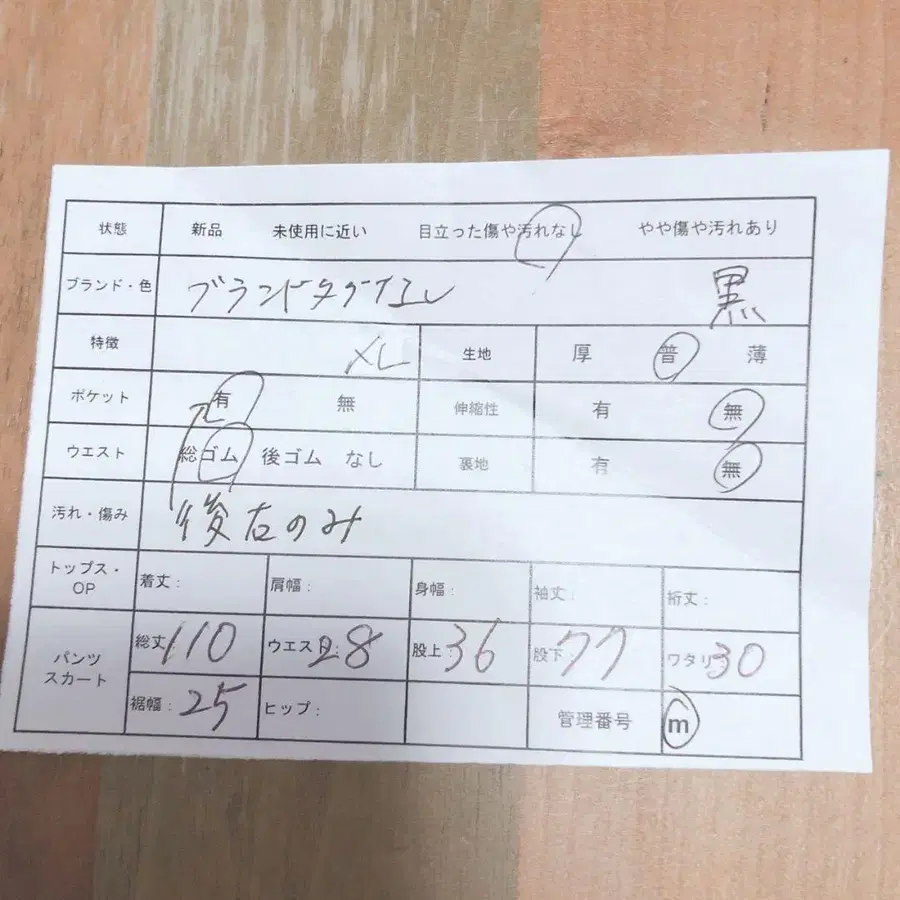 状態 新品 未使用に近い 目立った傷や汚れなし やや傷や汚れあり
ブランド・色 ブランドタグナシ 黒
特徴 XL 生地 厚 普 薄
ポケット 有 無 伸縮性 有 無
ウエスト 総ゴム 後ゴム なし 裏地 有 無
汚れ・傷み 後右のみ
トップス・OP 着丈: 肩幅: 身幅: 袖丈: 裄丈:
パンツ スカート 総丈 110 ウエスト: 28 股上: 36 股下: 77 ワタリ: 30
裾幅: 25 ヒップ: 管理番号 m